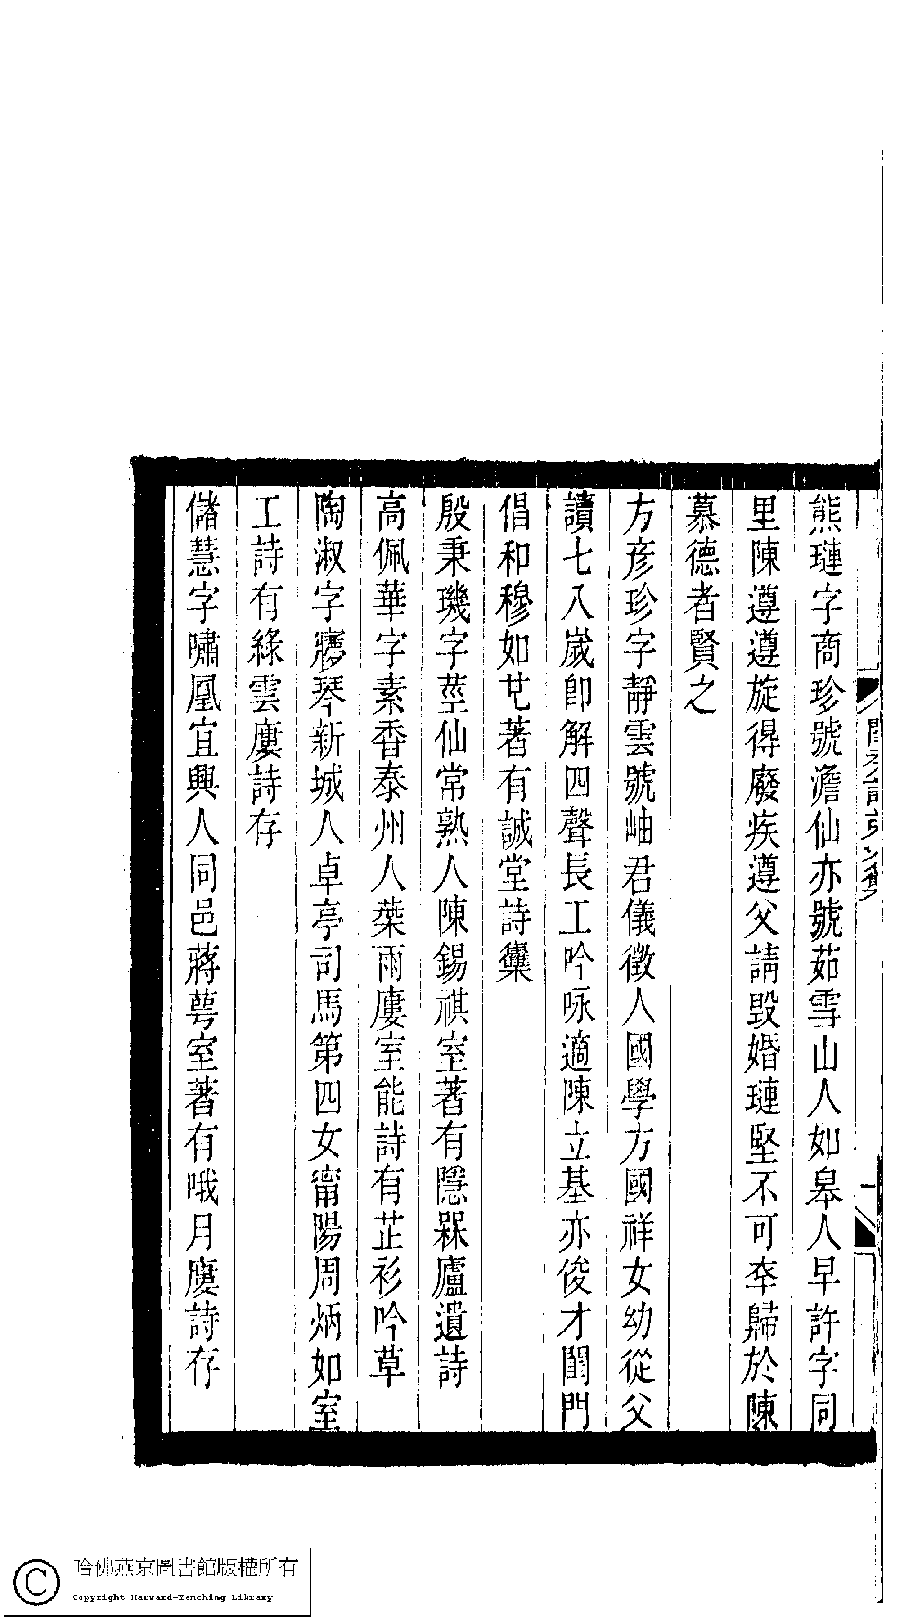 熊璉字商珍號澹仙亦號茹雪山人如皋人早許字同
里陳遵遵旋得廢疾遵父請毀婚璉堅不可卒歸於陳
慕德者賢之
方彥珍字靜雲號岫君儀徵人國學方國祥女幼從父
讀七八歲卽解四聲長工吟咏適陳立基亦俊才閨門
倡和穆如也著有誠堂詩藁
殷秉璣字莖仙常熟人陳錫祺室著有隱槑廬遺詩
高佩華字素香泰州人葉雨廔室能詩有芷衫吟草
陶淑字夢琴新城人卓亭司馬第四女甯陽周炳如室
工詩有綠雲廔詩存
儲慧字嘯凰宜興人同邑蔣萼室著有哦月廔詩存
哈佛燕京圖書館版權所有
Copyright Harvard-Yenching Library